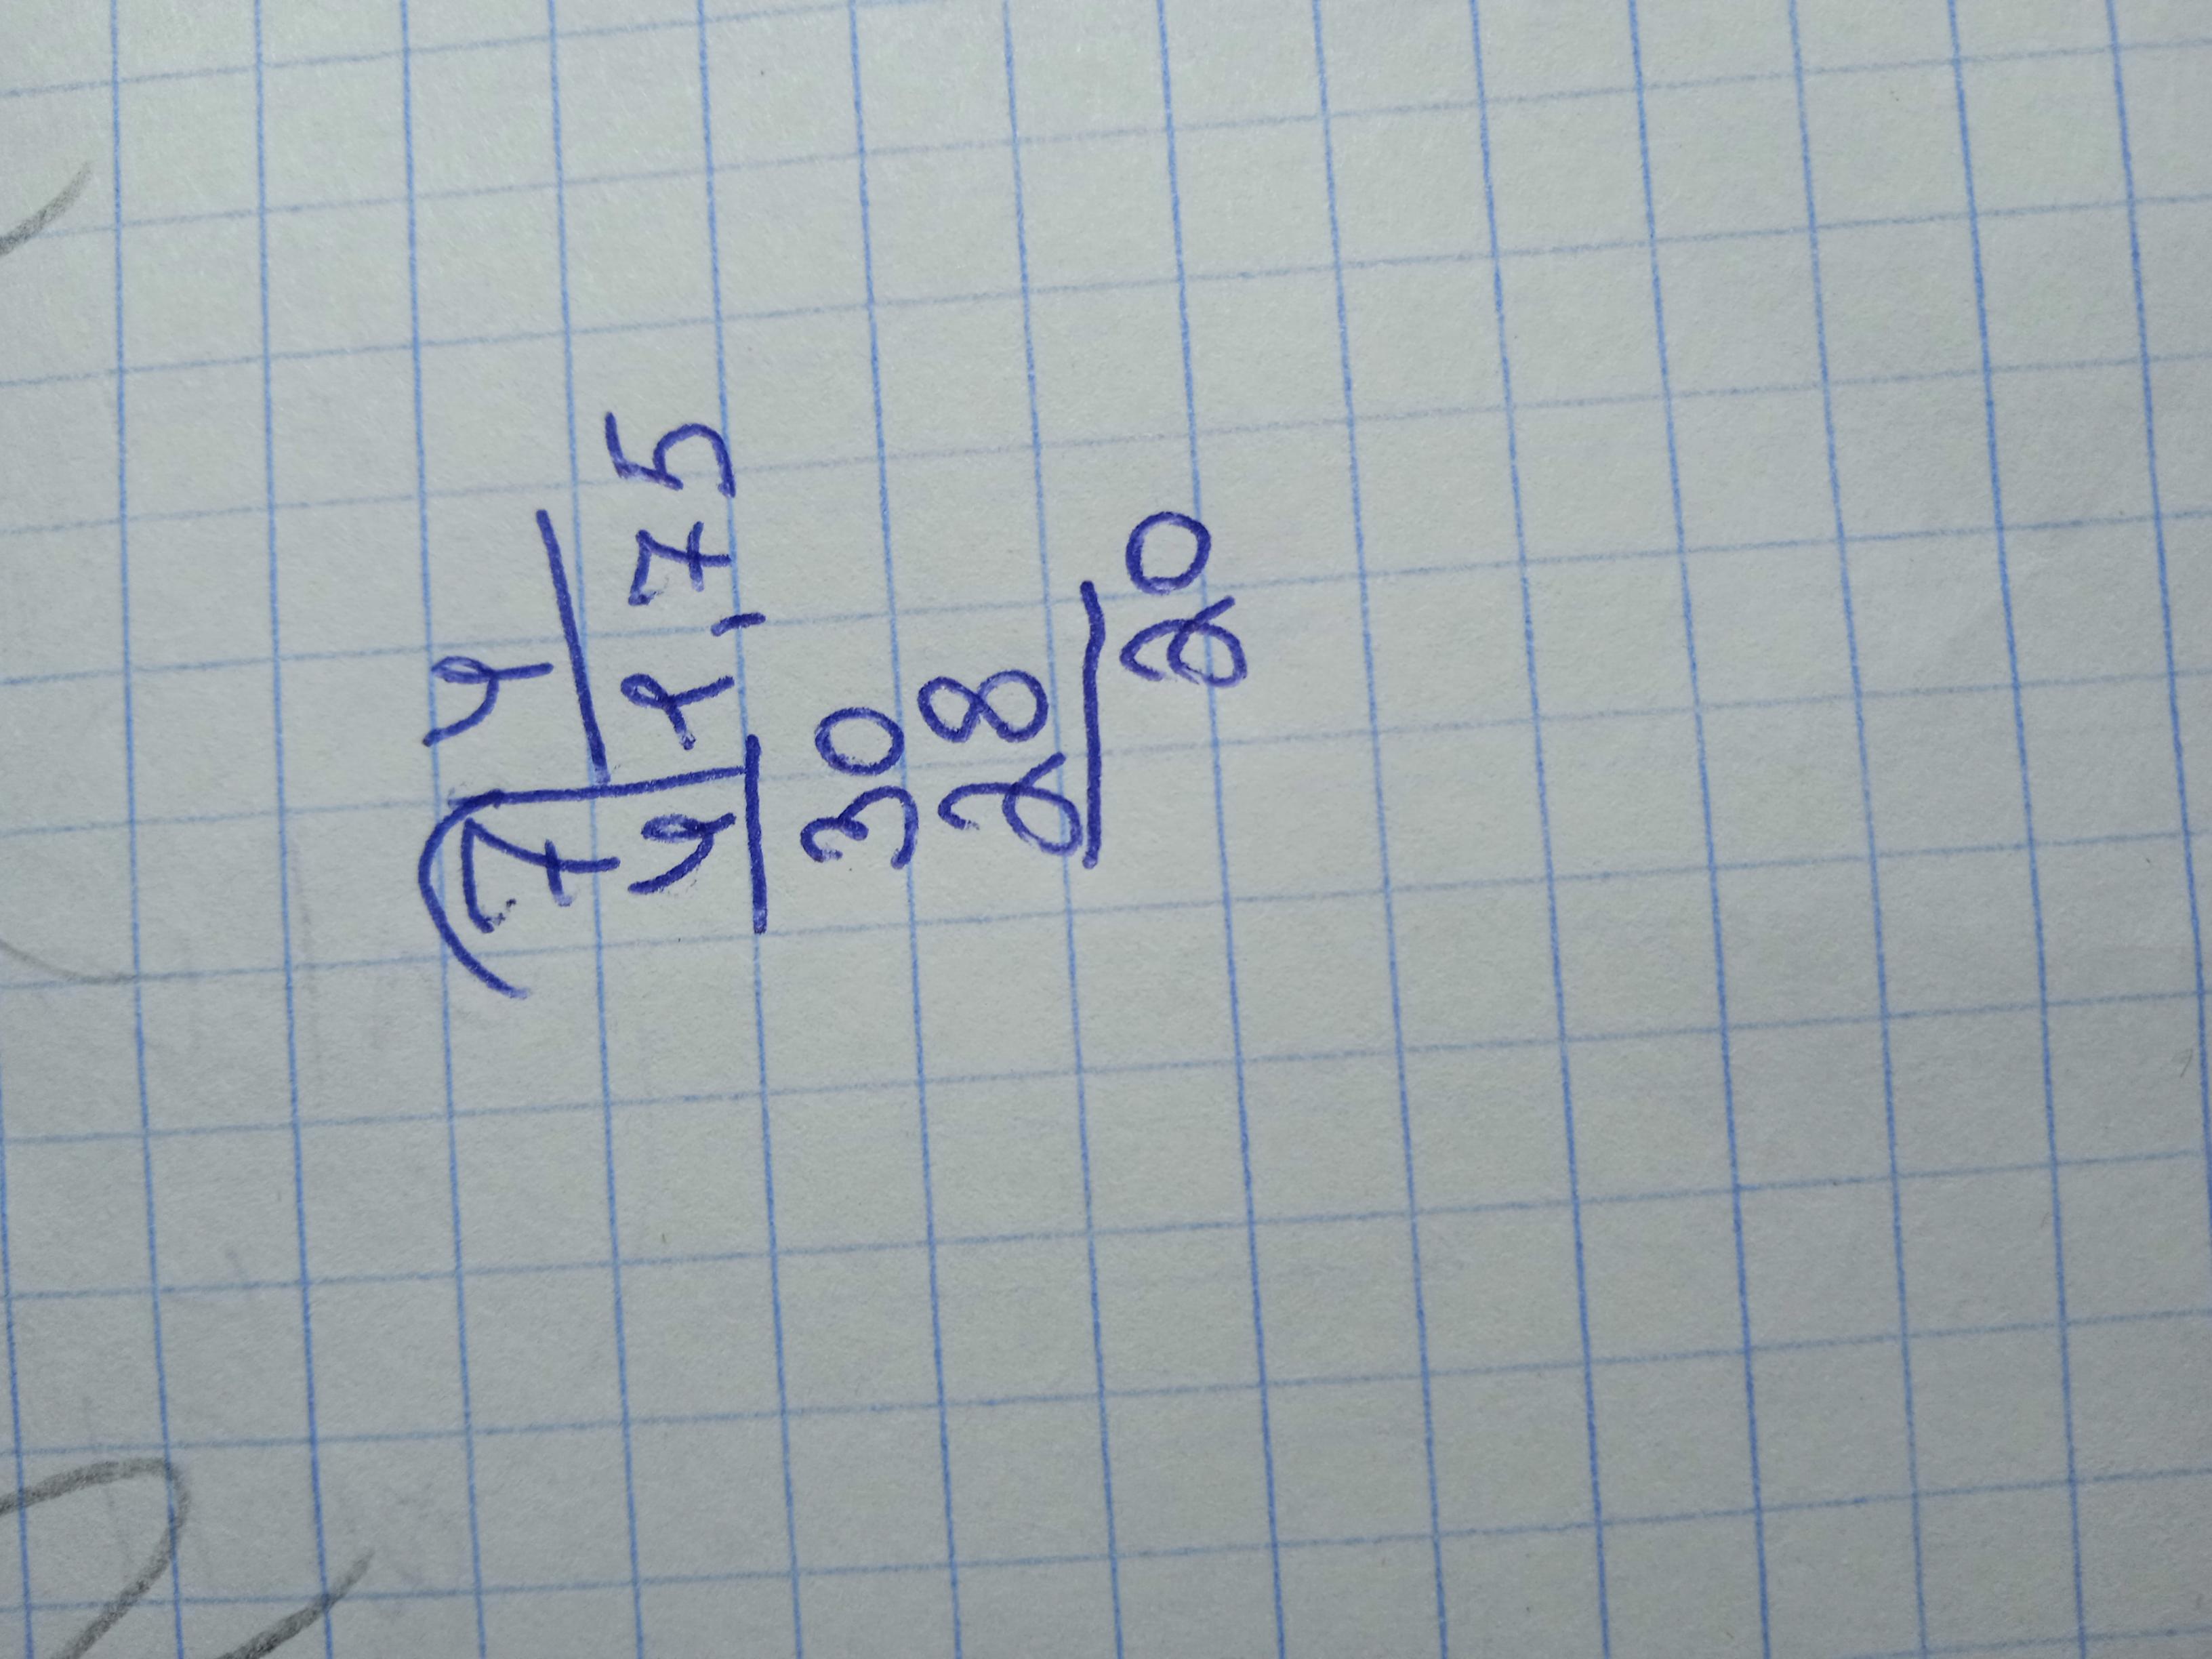 7 4
4 1,75
30
28
20